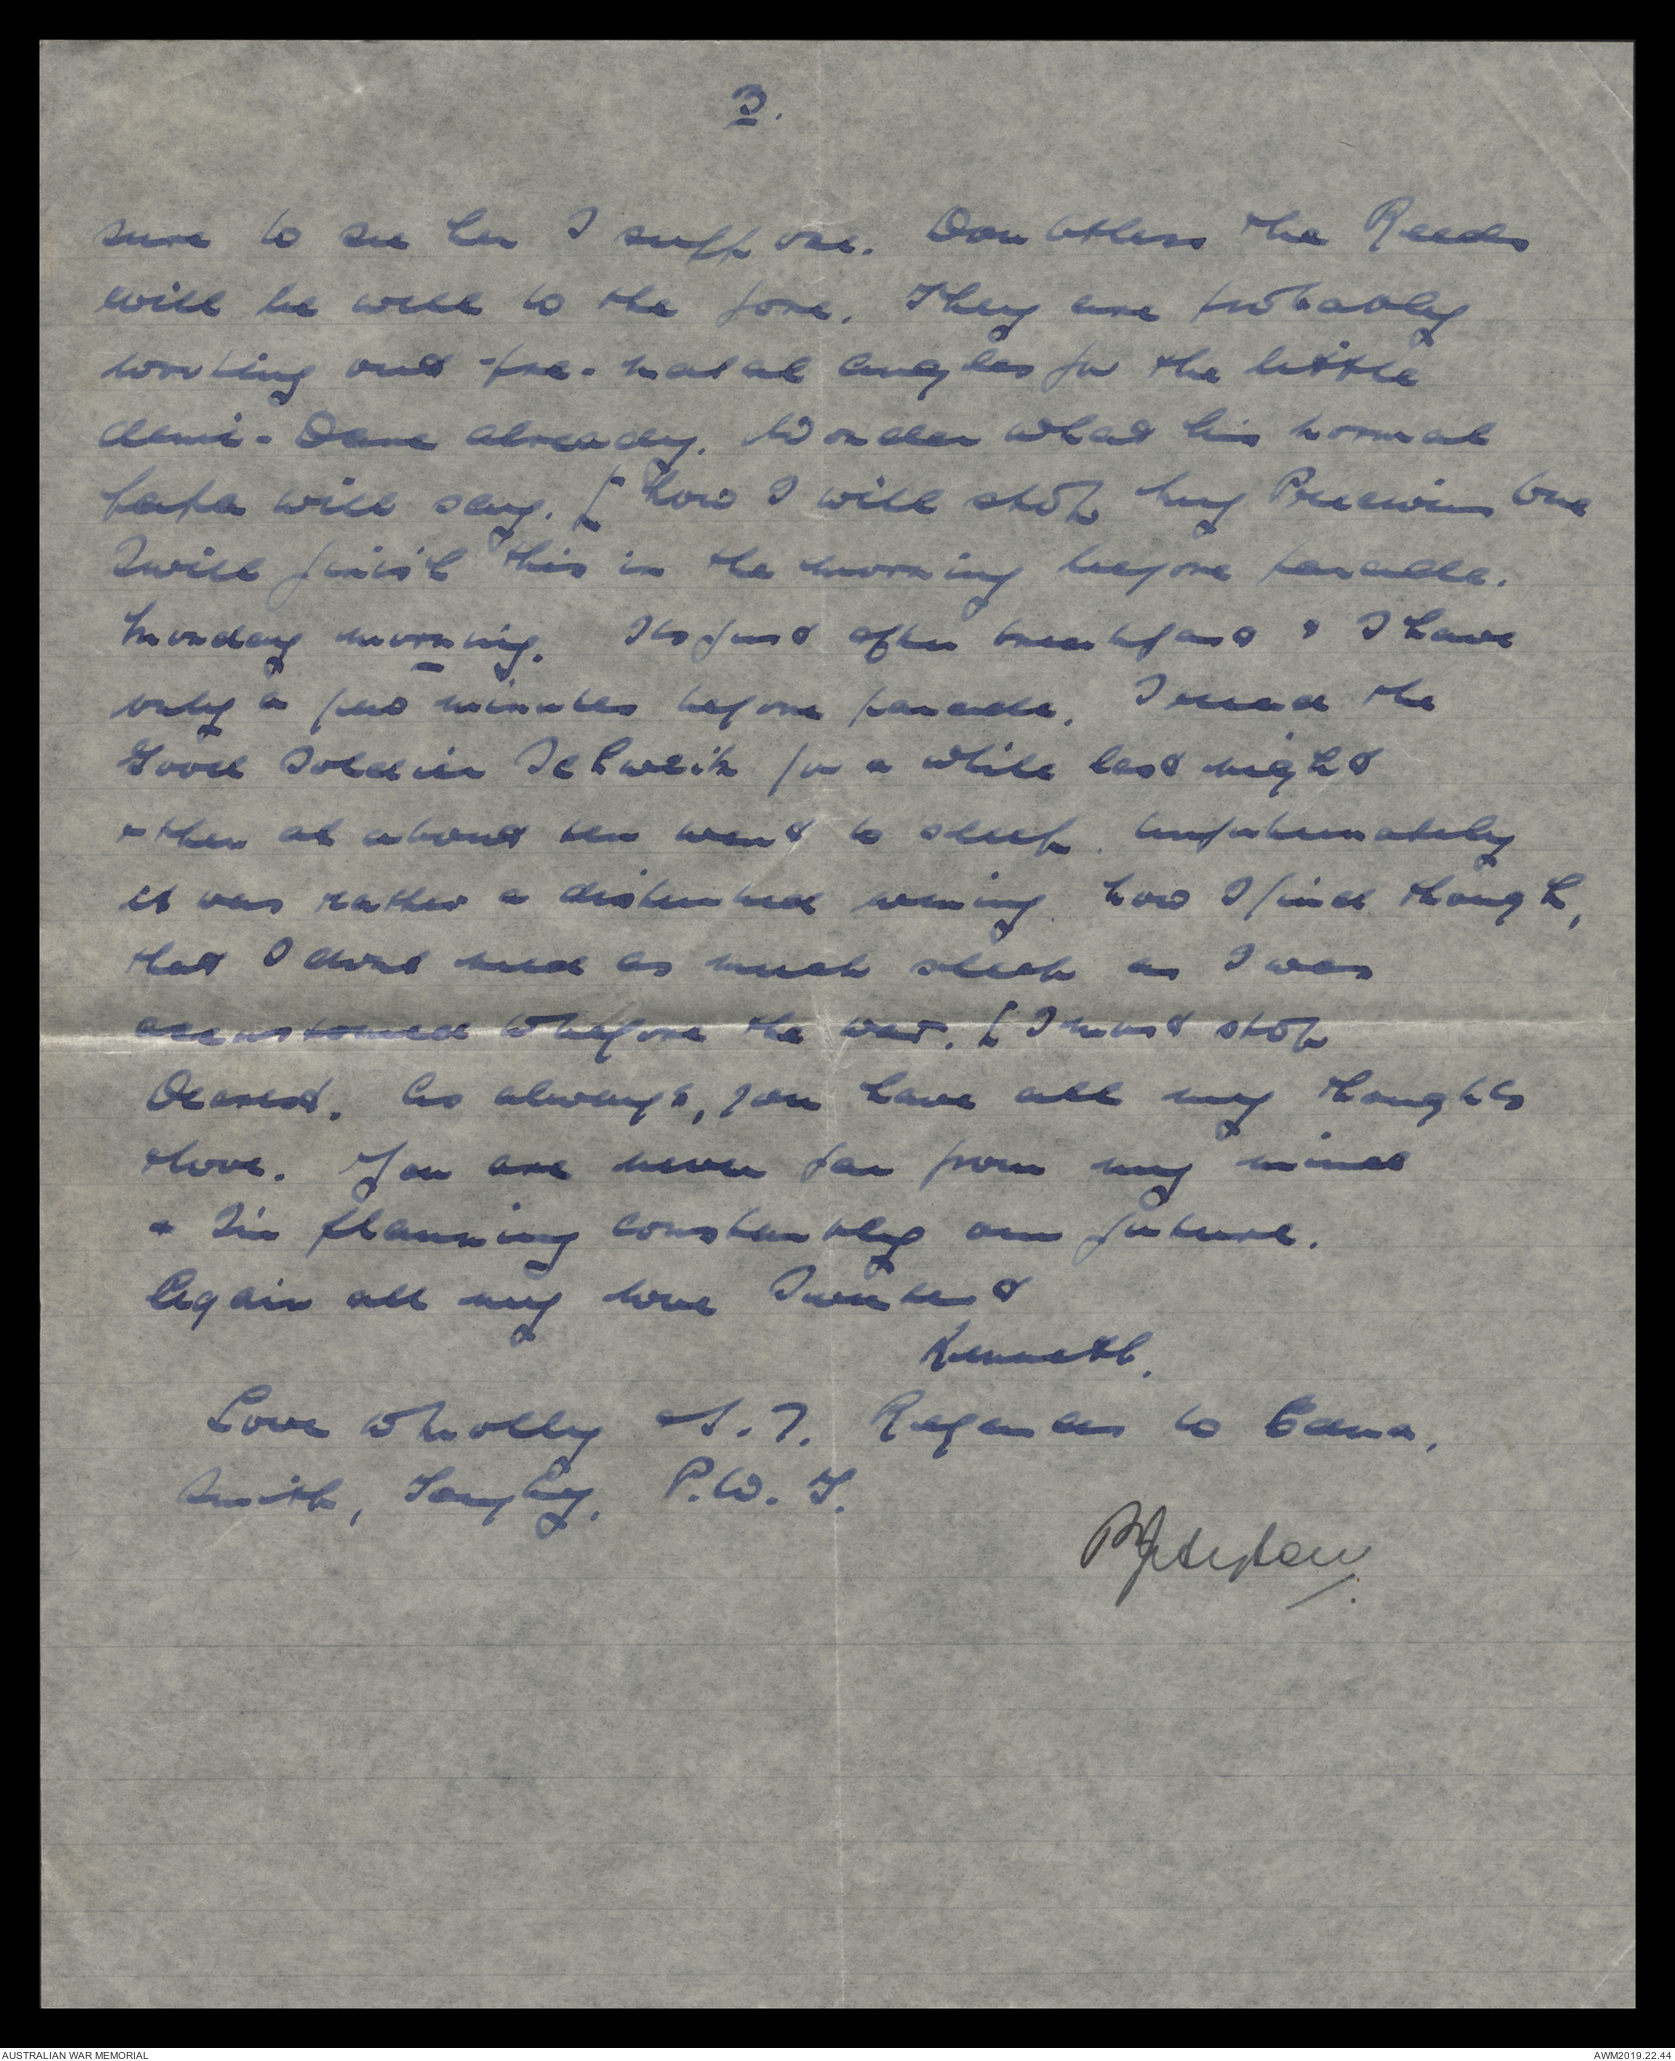 3.
sure to see her I suppose. Doubtless the Reeds
will be well to the fore. They are probably
working out pre-natal angles for the little
demi-Dane already. Wonder what his normal
papa will say. [Now I will stop my Precious one
I will finish this in the morning before parade.
Monday morning. Its just after breakfast & I have
only a few minutes before parade. I read the
Good Soldier Schweik for a while last night
& then at about ten went to sleep. Unfortunately
it was rather a disturbed evening. Now I find though,
that I dont need as much sleep as I was
accustomed to before the war. [I must stop
Dearest. As always, you have all my thoughts
& love. You are never far from my mind
& I'm planning constantly our future.
Again all my love Sweetest
Kenneth.
Love Wholly & S.T. Regards to Edna,
Smith, P.W.T.
AUSTRALIAN WAR MEMORIAL
AWM2019.22.44